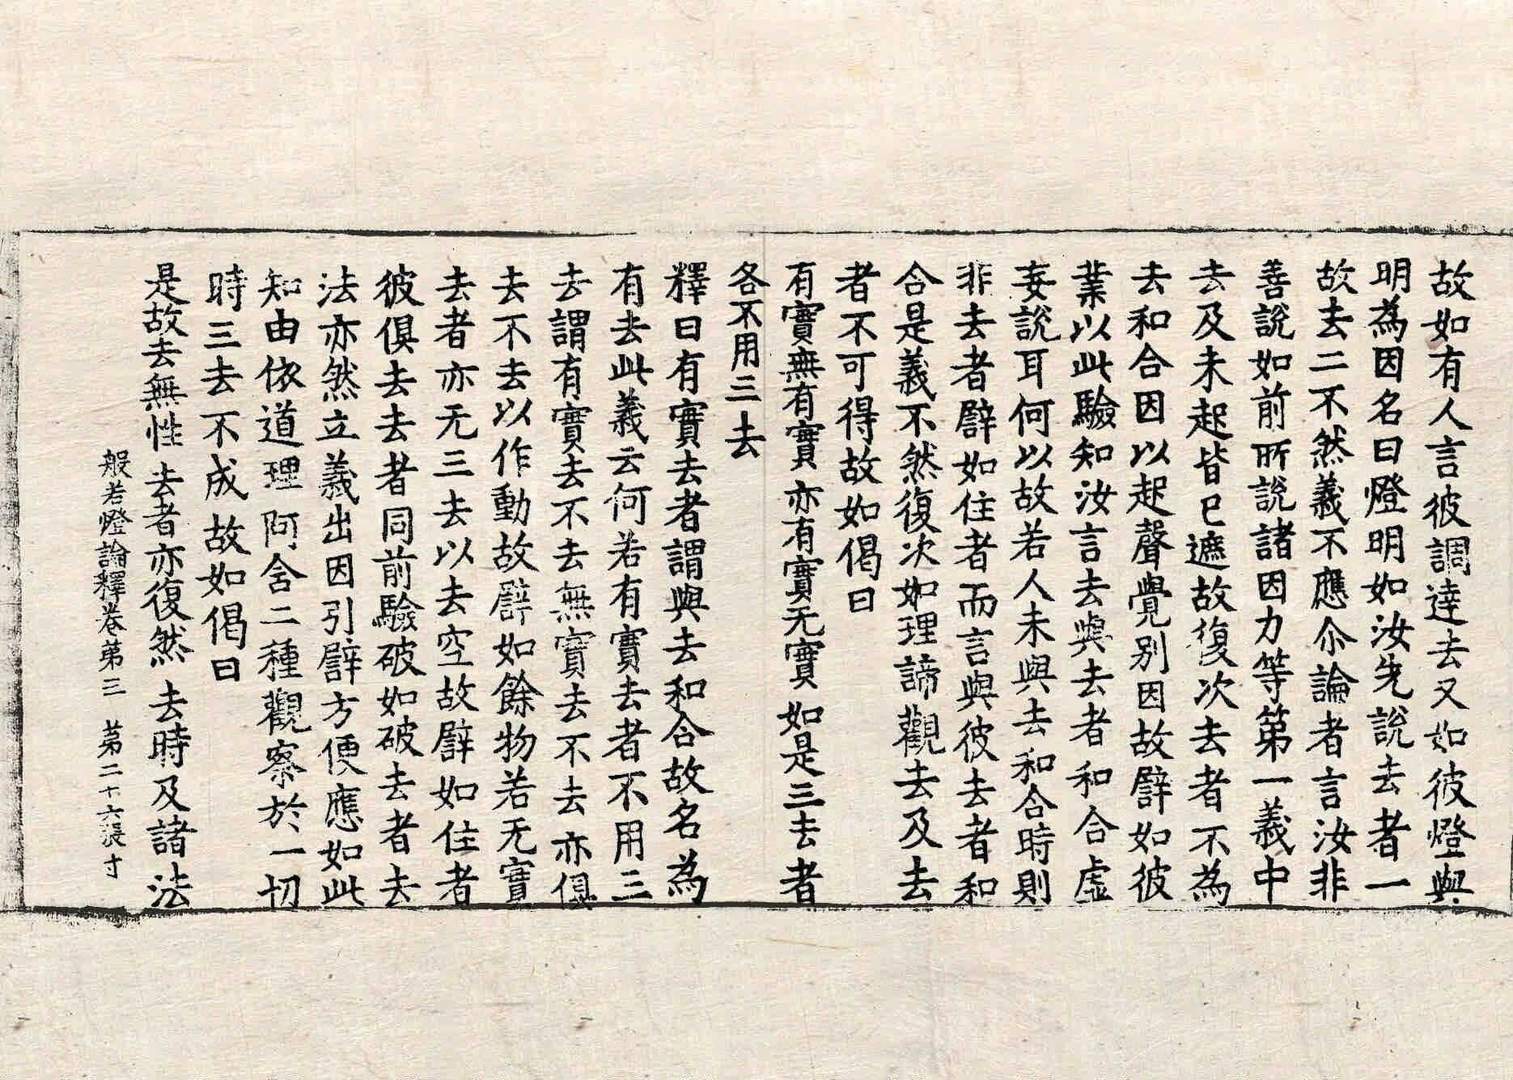 故如有人言彼調達去又如彼燈與
明為因名曰燈明如汝先說去者一
故去二不然義不應尒論者言汝非
善說如前所說諸因力等第一義中
去及未起皆已遮故復次去者不為
去和合因以起聲覺別因故譬如彼
業以此驗知汝言去與去者和合虛
妄說耳何以故若人未與去和合時則
非去者譬如住者而言與彼去者和
合是義不然復次如理諦觀去及去
者不可得故如偈曰
有實無有實亦有實无實如是三去者
各不用三去
釋曰有實去者謂與去和合故名為
有去此義云何若有實去者不用三
去謂有實去不去無實去不去亦俱
去不去以作動故譬如餘物若无實
去者亦无三去以去空故譬如住者
彼俱去去者同前驗破如破去者去
法亦然立義出因引譬方便應如此
知由依道理阿含二種觀察於一切
時三去不成故如偈曰
是故去無性 去者亦復然 去時及諸法
般若燈論釋卷第三 第二十六張 寸